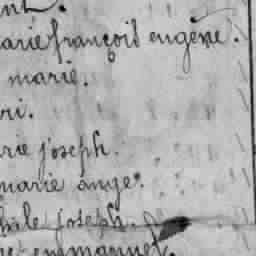 arie françois eugène.
marie.
ri.
rie joseph.
marie ange.
hile joseph.
emmanuel.